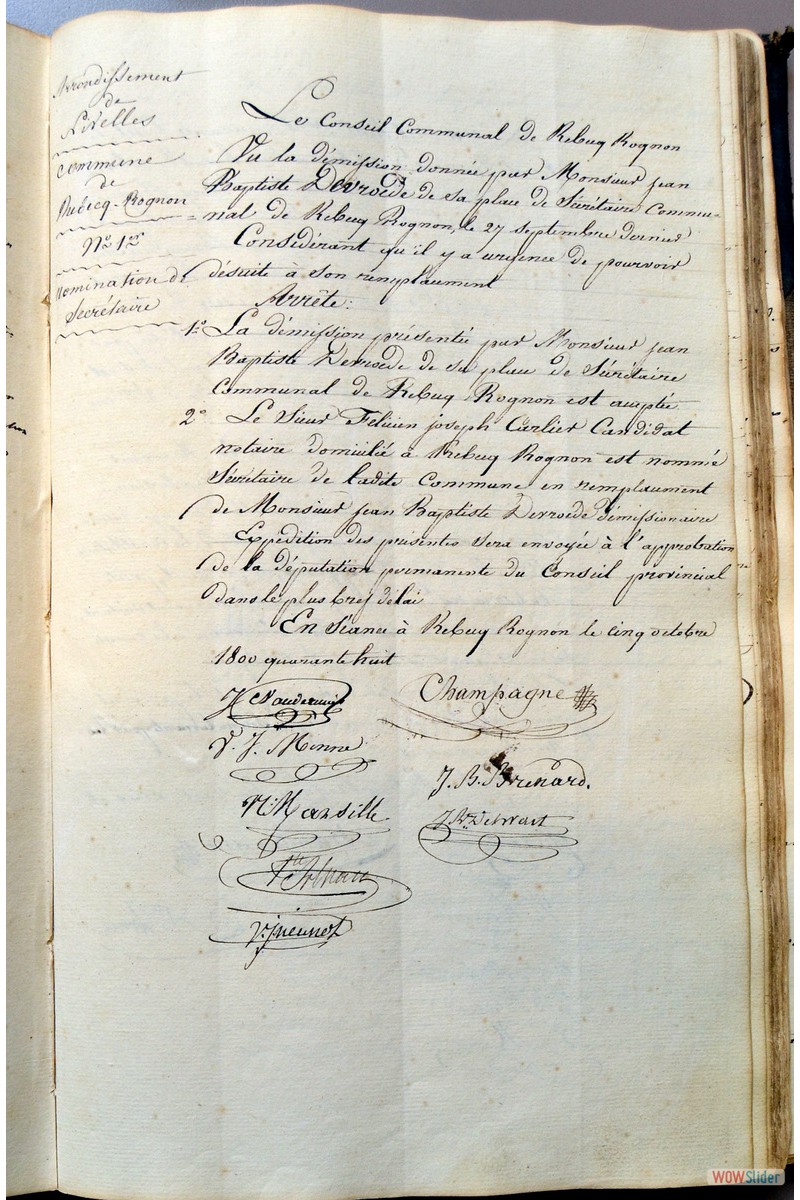 Arrondissement
de
Nivelles
Commune
de
Rebecq-Rognon
N° 1er
Nomination de
Secrétaire
Le Conseil Communal de Rebecq Rognon
Vu la démission donnée par Monsieur jean
Baptiste Devroede de sa place de Sécrétaire Commu-
nal de Rebecq Rognon, le 27 septembre dernier
Considérant qu'il y a urgence de pourvoir
désuite à son remplacement
Arrête:
1° La démission présentée par Monsieur jean
Baptiste Devroede de sa place de Sécrétaire
Communal de Rebecq Rognon est acceptée
2° Le Sieur Felicien joseph Carlier Candidat
notaire domicilié à Rebecq Rognon est nommé
Sécrétaire de ladite Commune en remplacement
de Monsieur jean Baptiste Devroede démissionaire
Expédition des présentes sera envoyée à l'approbation
de la députation permanente du Conseil provincial
dans le plus bref délai
En Séance à Rebecq Rognon le cinq octobre
1800 quarante huit
Champagne
V. J. Minne
J. B. Brenard.
WOWSlider